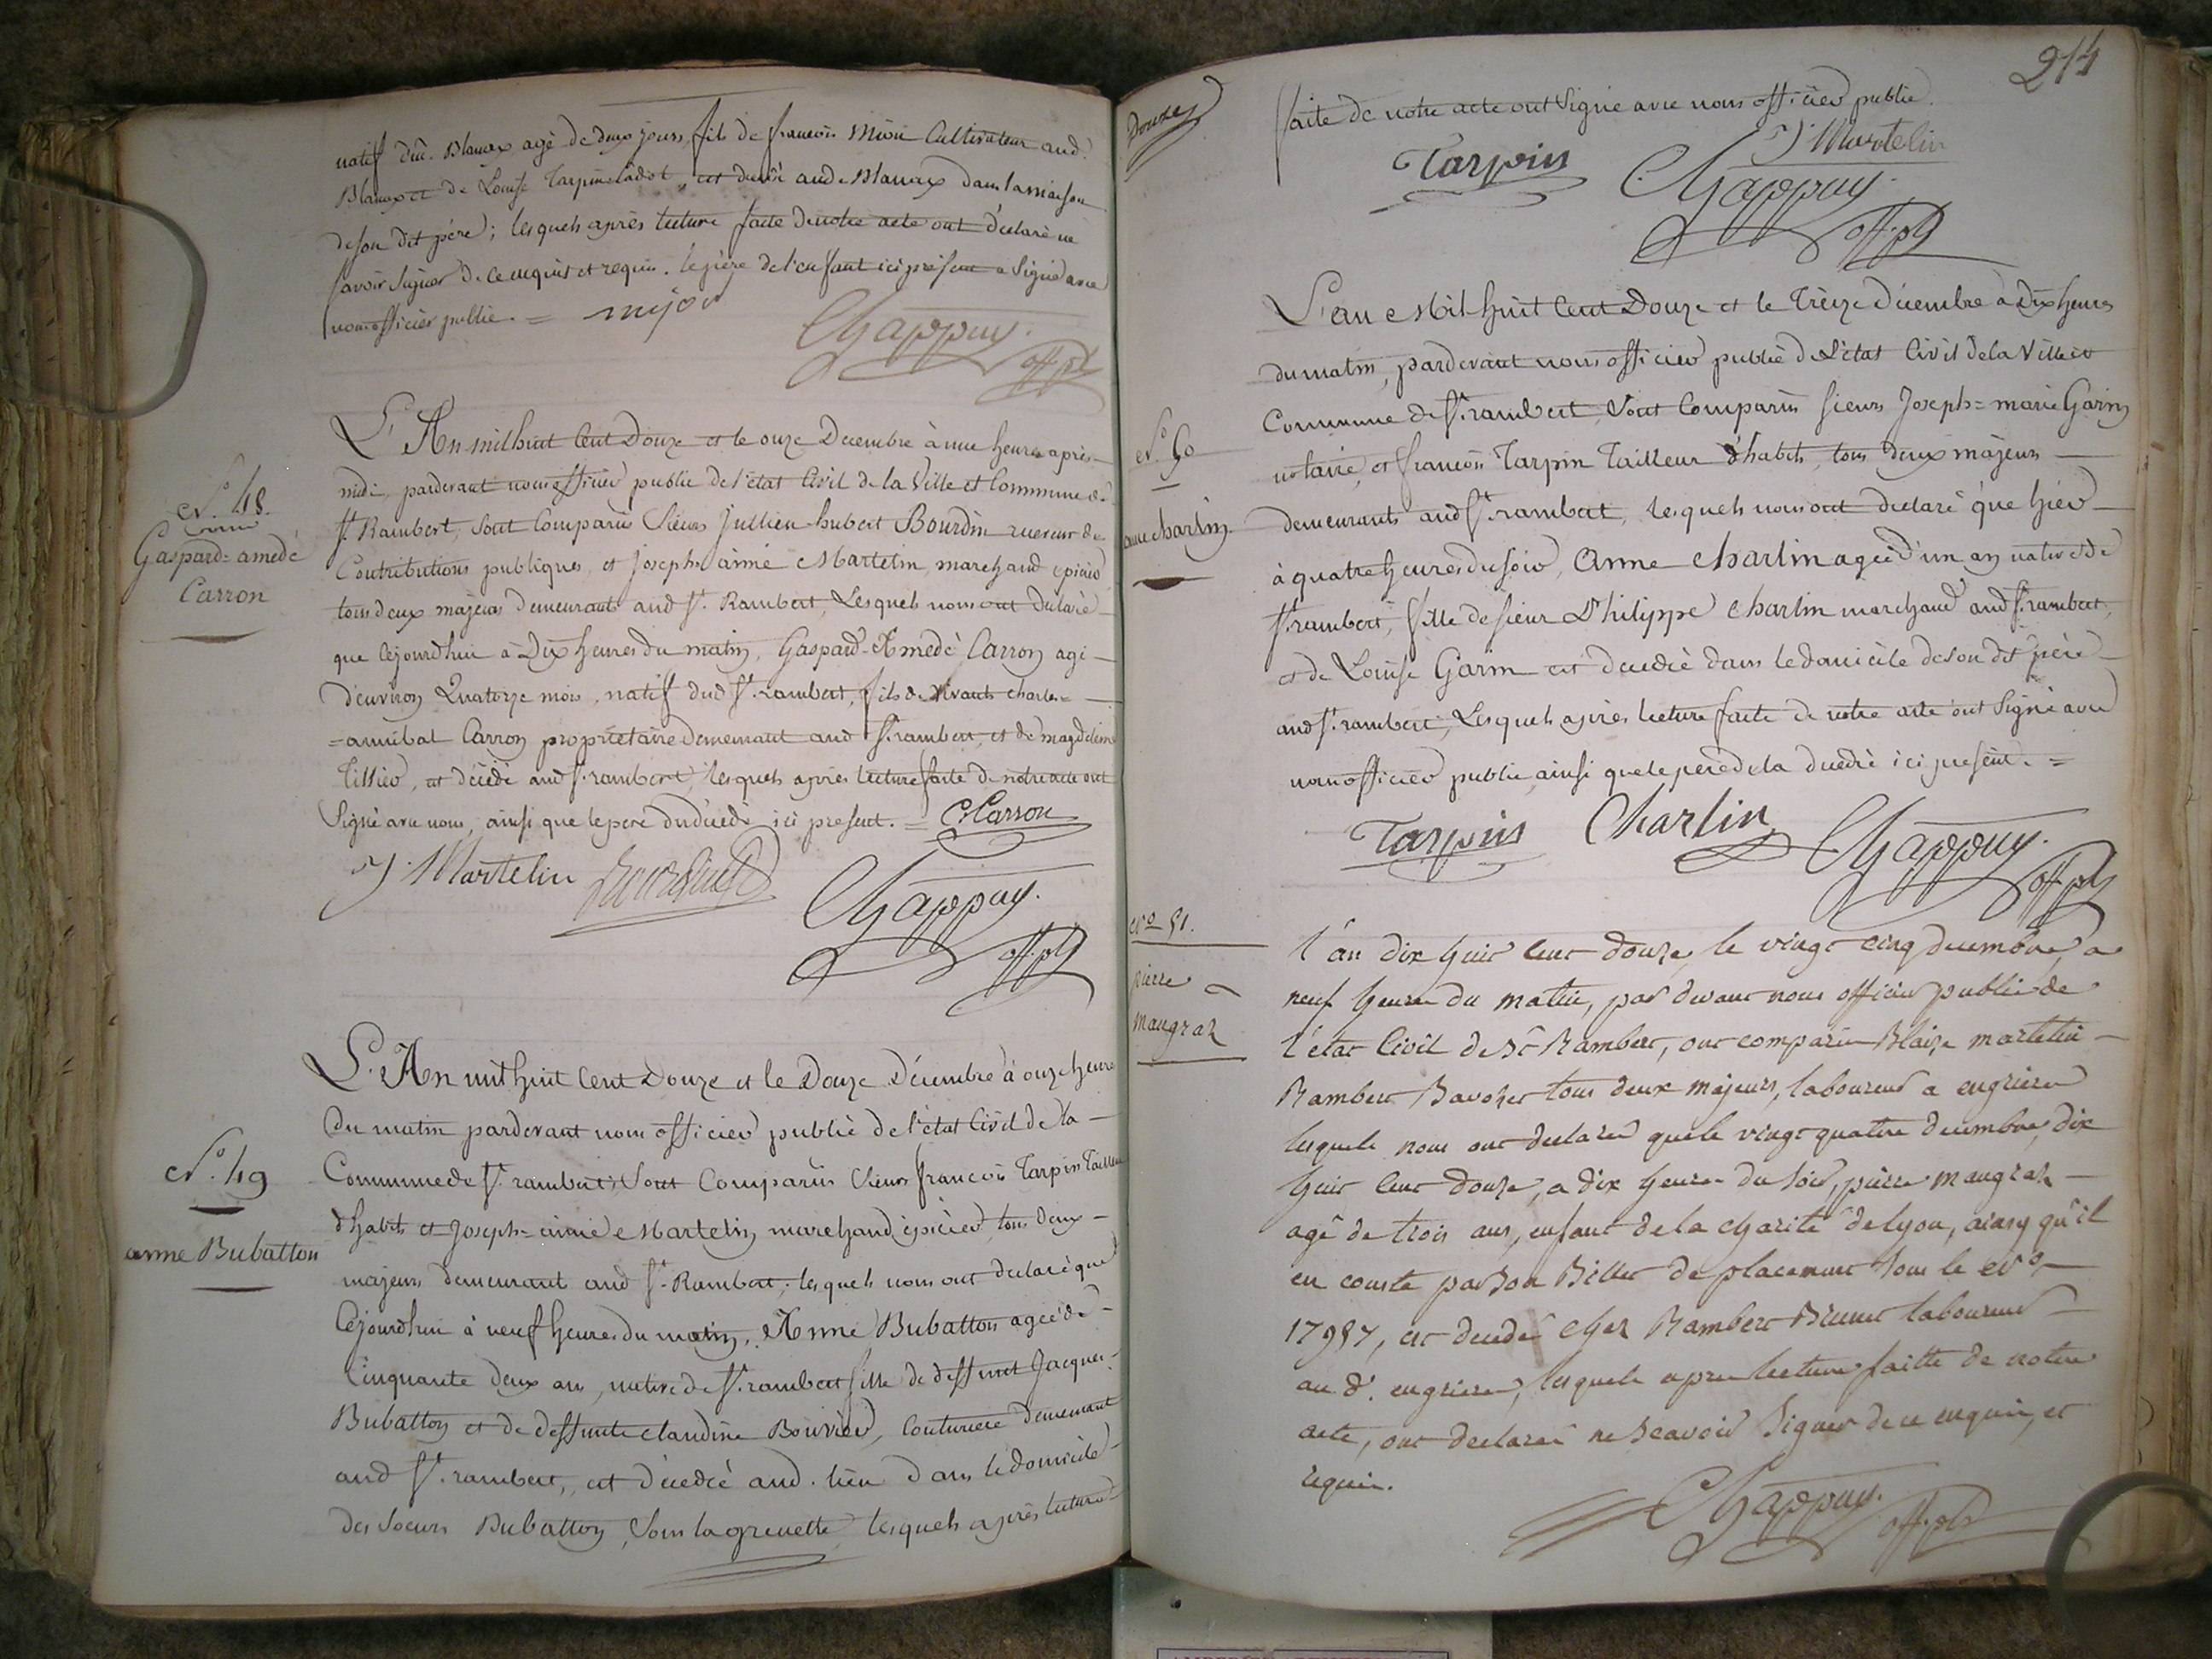 natif dud. Blanaz agé de deux jours, fils de francois Mion Cultivateur aud.
Blanaz et de Louise Tarpin Cadot, est décédé aud. Blanaz dans la maison
de son dit père; lesquels après lecture faite de notre acte ont déclaré ne
savoir signer de ce enquis et requis. le père de l'enfant ici présent a Signé avec
nous officier public. =
Chappuy.
off. pb
N.° 48.
Gaspard=amedé
Carron
L'An mil huit Cent Douze et le onze Decembre à une heure après
midi, pardevant nous officier public de l'état Civil de la Ville et Commune de
St. Rambert, Sont Comparus Sieurs Jullien-hubert Bourdin receveur de
Contributions publiques, et joseph-aimé Martelin, marchand epicier
tous deux majeurs demeurants aud St. Rambert, Lesquels nous ont declaré
que cejourdhui à Dix heures du matin, Gaspard-Amedé Carron agé
d'environ Quatorze mois, natif dud St. rambert, fils de vivants charles=
=annibal Carron propriétaire demeurant aud St. rambert, et de magdeleine
Tissier, est décédé aud St. rambert, lesquels après lecture faite de notre acte ont
Signé avec nous, ainsi que le pere du décédé ici present. = C. Carron
J. Martelin
Chappuy.
off. pb
N.° 49
anne Bubatton
L'An mil huit Cent Douze et le Douze Décembre à onze heures
du matin pardevant nous officier public de l'état Civil de la
Commune de St. rambert, Sont Comparus Sieurs francois Tarpin Tailleur
d'habits et Joseph-aimé Martelin marchand épicier, tous deux
majeurs demeurant aud St. Rambert, lesquels nous ont declaré que
Cejourdhui à neuf heures du matin, Anne Bubatton agée de
Cinquante deux ans, native de St. rambert fille de deffunt Jacques
Bubatton et de deffunte claudine Bouvier, Couturiere demeurant
aud St. rambert, est décédé aud. lieu dans le domicile
des Soeurs Bubatton, Sous la grenette, lesquels après lecture
214
Douze
faite de notre acte ont Signé avec nous officier public.
Tarpin J. Martelin
Chappuy.
off. pb
N.° 50
anne charlin.
L'an Mil huit Cent Douze et le Treize décembre à Dix heures
du matin, pardevant nous officier public de L'état Civil de la Ville et
Commune de St. rambert, Sont Comparus sieurs Joseph=marie Garin
notaire, et francois Tarpin Tailleur d'habits, tous deux majeurs
demeurants aud St. rambert, lesquels nous ont declaré que hier
à quatre heures du soir, Anne charlin agée d'un an native de
St. rambert, fille de sieur Philippe charlin marchand aud St. rambert,
et de Louise Garin est decedée dans le domicile de son dit père
aud St. rambert; Lesquels après lecture faite de notre acte ont Signé avec
nous officier public ainsi que le père de la decedée ici présent. =
Tarpin Charlin Chappuy.
off. pb
N.° 51.
pierre
maugraz
l'an dix huit cent douze, le vingt cinq decembre, a
neuf heures du matin, par devant nous officier public de
l'état Civil de St Rambert, ont comparus Blaize martelin
Rambert Bavozet tous deux majeurs, laboureurs a
lesquels nous ont declarer que le vingt quatre decembre dix
huit cent douze, a dix heures du soir, pierre maugraz
agé de trois ans, enfant de la charité de lyon, ainsy qu'il
en conste par son Billet de placement sous le N.°
17987, est decedé chez Rambert Brunet laboureur
au d. lesquels apres lecture faitte de notre
acte, ont declaré ne scavoir signer de ce enquis, et
requis.
Chappuy.
off. pb